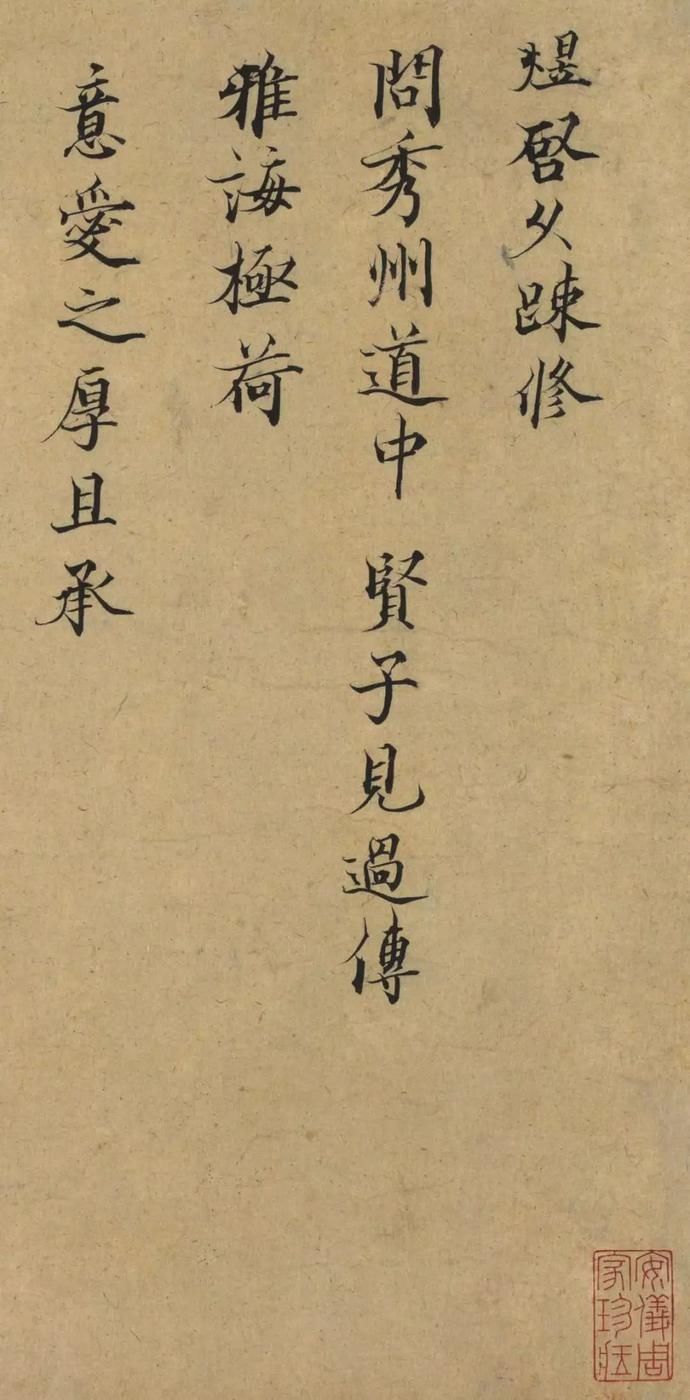 煜啓久踈修
問秀州道中 賢子見過傳
雅誨極荷
意愛之厚且承
安儀周
家珍藏